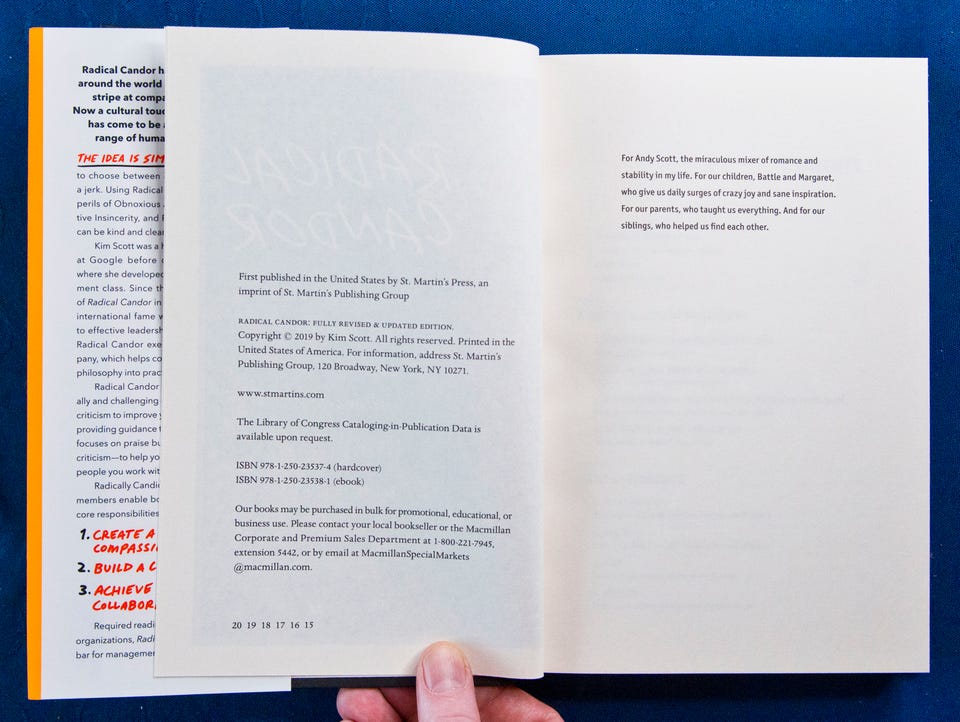 Radical Candor h
around the world
stripe at compa
Now a cultural touc
has come to be
range of huma
THE IDEA IS SIM
to choose between
a jerk. Using Radical
perils of Obnoxious
tive Insincerity, and
can be kind and clea
Kim Scott was a
at Google before
where she developed
ment class. Since th
of Radical Candor in
international fame w
to effective leadersh
Radical Candor exe
pany, which helps co
philosophy into prac
Radical Candor
ally and challenging
criticism to improve
providing guidance t
focuses on praise bu
criticism—to help yo
people you work wit
Radically Candi
members enable bo
core responsibilities
1. CREATE A
COMPASSI
2. BUILD A C
3. ACHIEVE
COLLABOR
Required readi
organizations, Radi
bar for managemen
RADICAL
CANDOR
First published in the United States by St. Martin's Press, an
imprint of St. Martin's Publishing Group
RADICAL CANDOR: FULLY REVISED & UPDATED EDITION.
Copyright © 2019 by Kim Scott. All rights reserved. Printed in the
United States of America. For information, address St. Martin's
Publishing Group, 120 Broadway, New York, NY 10271.
www.stmartins.com
The Library of Congress Cataloging-in-Publication Data is
available upon request.
ISBN 978-1-250-23537-4 (hardcover)
ISBN 978-1-250-23538-1 (ebook)
Our books may be purchased in bulk for promotional, educational, or
business use. Please contact your local bookseller or the Macmillan
Corporate and Premium Sales Department at 1-800-221-7945,
extension 5442, or by email at MacmillanSpecialMarkets
@macmillan.com.
20 19 18 17 16 15
For Andy Scott, the miraculous mixer of romance and
stability in my life. For our children, Battle and Margaret,
who give us daily surges of crazy joy and sane inspiration.
For our parents, who taught us everything. And for our
siblings, who helped us find each other.